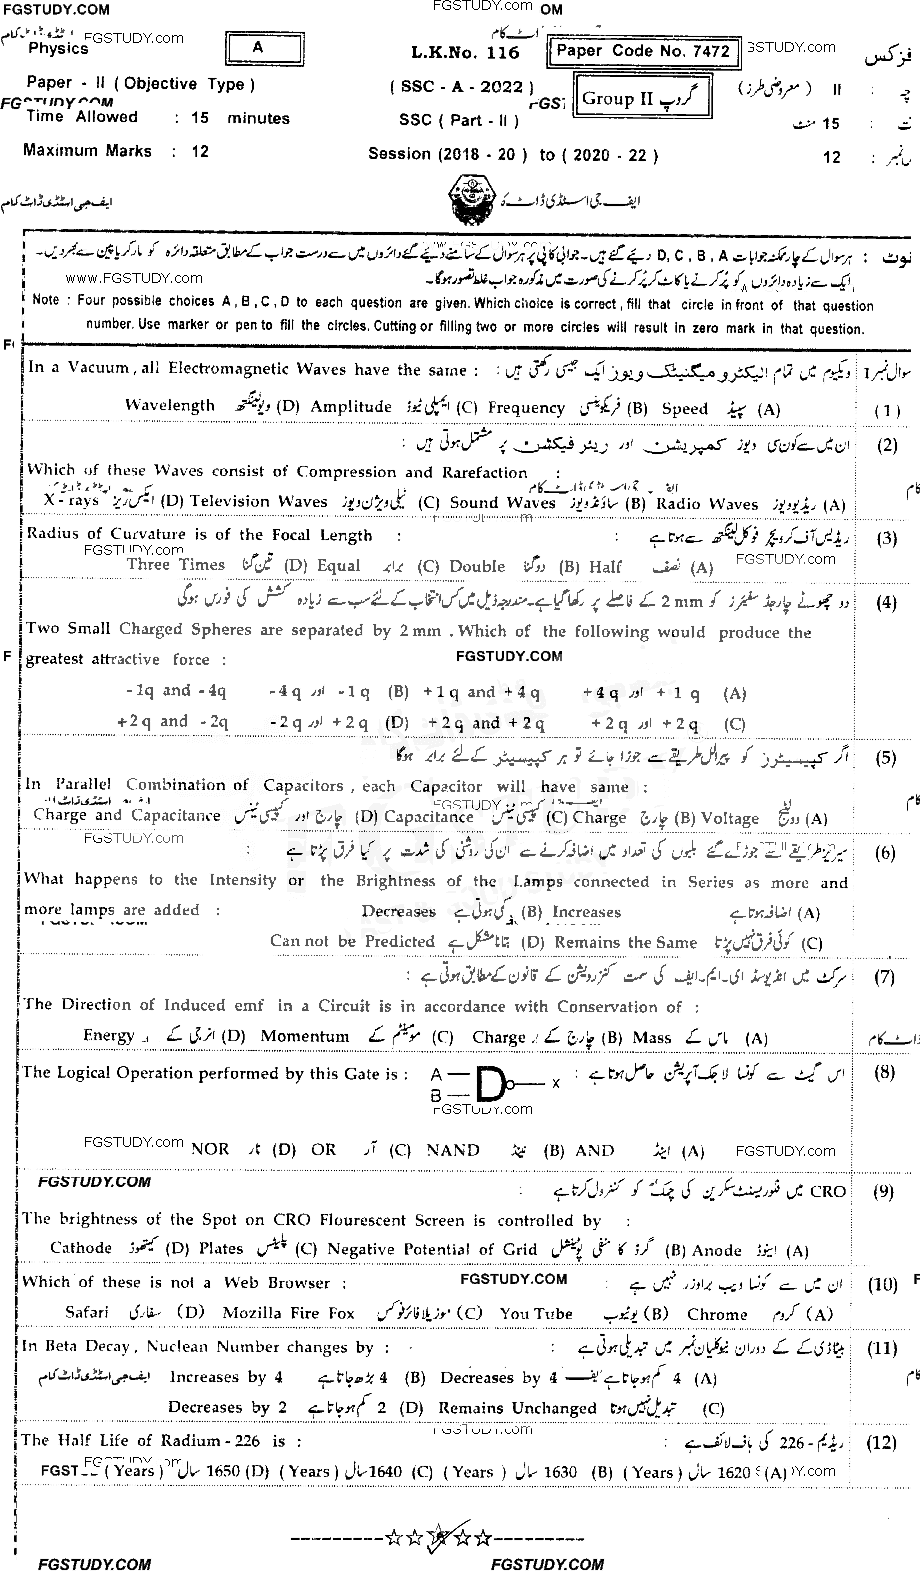 FGSTUDY.COM
FGSTUDY.COM OM
FGSTUDY.com
Physics
A
L.K.No. 116
Paper Code No. 7472
FGSTUDY.com
فزکس
Paper - II ( Objective Type )
( SSC - A - 2022 )
Group II گروپ
II ( معروضی طرز )
Time Allowed : 15 minutes
SSC ( Part - II )
15 منٹ
Maximum Marks : 12
Session (2018 - 20 ) to ( 2020 - 22 )
12
ایف جی اسٹڈی ڈاٹ کام
نوٹ : ہر سوال کے چار ممکنہ جوابات D, C, B, A دیئے گئے ہیں۔ جوابی کاپی پر ہر سوال کے سامنے دیئے گئے دائروں میں سے درست جواب کے مطابق متعلقہ دائرہ کو مارکر یا پین سے بھر دیں۔
www.FGSTUDY.com
ایک سے زیادہ دائروں کو پُر کرنے یا کاٹ کر پُر کرنے کی صورت میں مذکورہ جواب غلط تصور ہوگا۔
Note : Four possible choices A , B , C , D to each question are given. Which choice is correct , fill that circle in front of that question
number. Use marker or pen to fill the circles. Cutting or filling two or more circles will result in zero mark in that question.
In a Vacuum , all Electromagnetic Waves have the same : ویکیوم میں تمام الیکٹرو میگنیٹک ویوز ایک جیسی رکھتی ہیں : سوال نمبر 1
Wavelength ویولینگتھ (D) Amplitude ایمپلی ٹیوڈ (C) Frequency فریکوئنسی (B) Speed سپیڈ (A) (1)
ان میں سے کون سی ویوز کمپریشن اور ریئر فیکشن پر مشتمل ہوتی ہیں : (2)
Which of these Waves consist of Compression and Rarefaction :
X-rays ایکس ریز (D) Television Waves ٹیلی ویژن ویوز (C) Sound Waves ساؤنڈ ویوز (B) Radio Waves ریڈیو ویوز (A)
Radius of Curvature is of the Focal Length : ریڈیس آف کرویچر فوکل لینگتھ سے ہوتا ہے : (3)
FGSTUDY.com
Three Times تین گنا (D) Equal برابر (C) Double دوگنا (B) Half نصف (A)
FGSTUDY.com
دو چھوٹے چارجڈ سفیئرز کو 2 mm کے فاصلے پر رکھا گیا ہے۔ مندرجہ ذیل میں کس انتخاب کے لئے سب سے زیادہ کشش کی فورس ہوگی (4)
Two Small Charged Spheres are separated by 2 mm . Which of the following would produce the
greatest attractive force :
FGSTUDY.COM
-1q and -4q -4q اور -1q (B) +1q and +4q +4q اور +1q (A)
+2q and -2q -2q اور +2q (D) +2q and +2q +2q اور +2q (C)
اگر کپیسیٹرز کو پیرالل طریقے سے جوڑا جائے تو ہر کپیسیٹر کے لئے برابر ہوگا (5)
In Parallel Combination of Capacitors , each Capacitor will have same :
Charge and Capacitance چارج اور کپیسی ٹینس (D) Capacitance کپیسی ٹینس (C) Charge چارج (B) Voltage وولٹیج (A)
FGSTUDY.com
سیریز طریقے سے جوڑے گئے بلبوں کی تعداد میں اضافہ کرنے سے ان کی روشنی کی شدت پر کیا فرق پڑتا ہے : (6)
What happens to the Intensity or the Brightness of the Lamps connected in Series as more and
more lamps are added :
Decreases کمی ہوتی ہے (B) Increases اضافہ ہوتا ہے (A)
Can not be Predicted بتانا مشکل ہے (D) Remains the Same کوئی فرق نہیں پڑتا (C)
سرکٹ میں انڈیوسڈ ای۔ایم۔ایف کی سمت کنزرویشن کے قانون کے مطابق ہوتی ہے : (7)
The Direction of Induced emf in a Circuit is in accordance with Conservation of :
Energy انرجی کے (D) Momentum مومینٹم کے (C) Charge چارج کے (B) Mass ماس کے (A)
The Logical Operation performed by this Gate is : A B X اس گیٹ سے کونسا لاجک آپریشن حاصل ہوتا ہے : (8)
FGSTUDY.com
NOR نار (D) OR آر (C) NAND نینڈ (B) AND اینڈ (A)
FGSTUDY.com
FGSTUDY.com
FGSTUDY.COM
CRO میں فلوریسنٹ سکرین کی چمک کو کنٹرول کرتا ہے : (9)
The brightness of the Spot on CRO Flourescent Screen is controlled by :
Cathode کیتھوڈ (D) Plates پلیٹس (C) Negative Potential of Grid گرڈ کا منفی پوٹینشل (B) Anode اینوڈ (A)
Which of these is not a Web Browser : FGSTUDY.COM ان میں سے کونسا ویب براوزر نہیں ہے : (10)
Safari سفاری (D) Mozilla Fire Fox موزیلا فائر فوکس (C) You Tube یوٹیوب (B) Chrome کروم (A)
In Beta Decay , Nuclean Number changes by : بیٹا ڈی کے کے دوران نیوکلیان نمبر میں تبدیلی ہوتی ہے : (11)
ایف جی اسٹڈی ڈاٹ کام Increases by 4 4 بڑھ جاتا ہے (B) Decreases by 4 4 کم ہو جاتا ہے (A)
Decreases by 2 2 کم ہو جاتا ہے (D) Remains Unchanged تبدیل نہیں ہوتا (C)
FGSTUDY.com
The Half Life of Radium - 226 is : ریڈیم - 226 کی ہاف لائف ہے : (12)
( Years ) سال 1650 (D) ( Years ) سال 1640 (C) ( Years ) سال 1630 (B) ( Years ) سال 1620 (A)
FGSTUDY.COM
FGSTUDY.COM